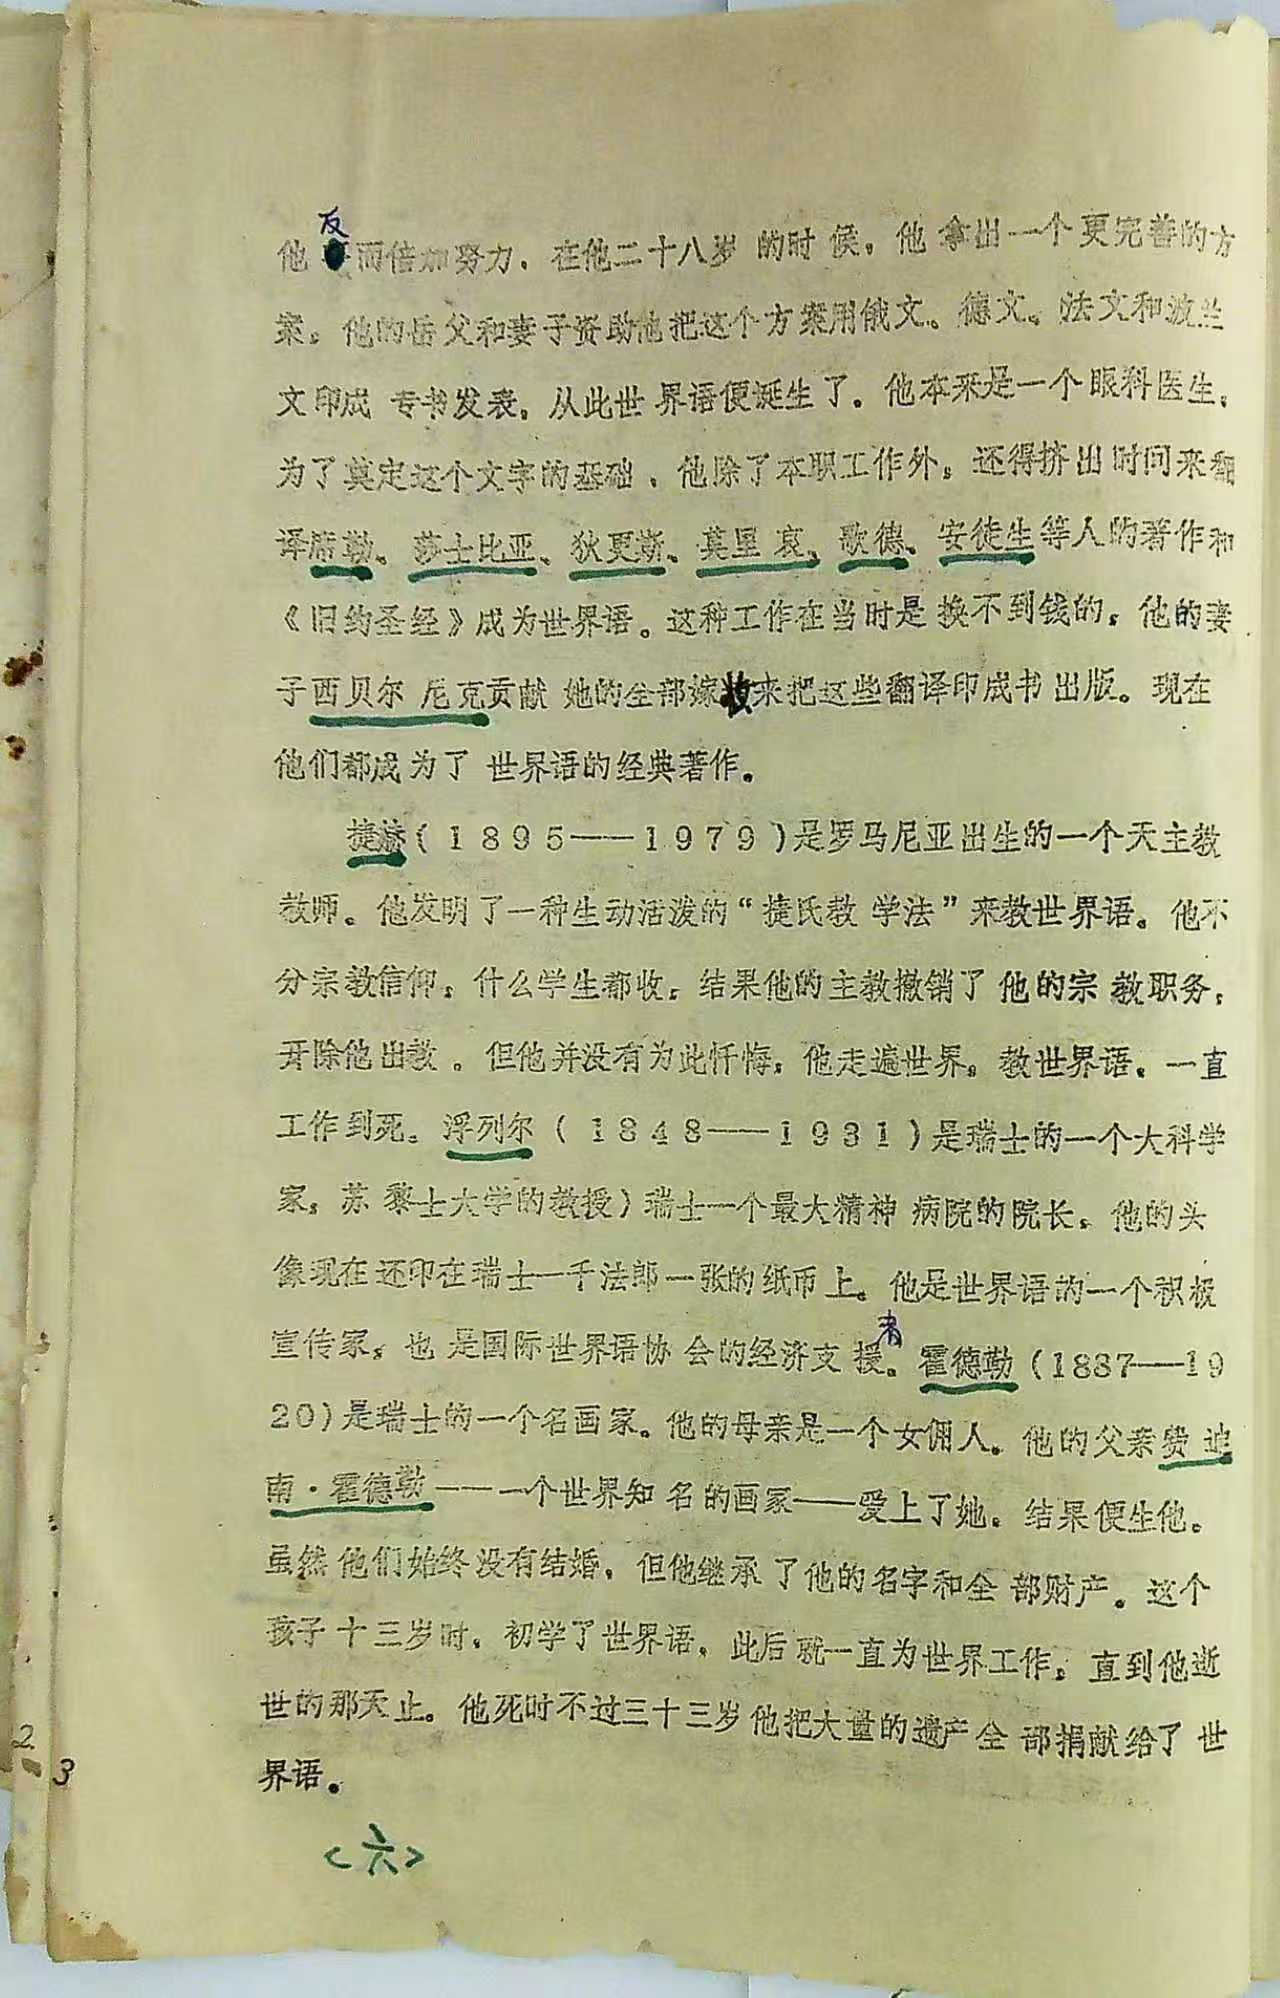 他反而倍加努力．在他二十八岁的时候，他拿出一个更完善的方
案，他的岳父和妻子资助他把这个方案用俄文、德文、法文和波兰
文印成专书发表，从此世界语便诞生了．他本来是一个眼科医生，
为了莫定这个文字的基础，他除了本职工作外，还得挤出时间来翻
译席勒、莎士比亚、狄更斯、莫里哀、歌德、安徒生等人的著作和
《旧约圣经》成为世界语。这种工作在当时是换不到钱的，他的妻
子西贝尔尼克贡献她的全部嫁妆来把这些翻译印成书出版。现在
他们都成为了世界语的经典著作。
捷（1895——1979）是罗马尼亚出生的一个天主教
教师。他发明了一种生动活泼的“捷氏教学法”来教世界语。他不
分宗教信仰，什么学生都收，结果他的主教撤销了他的宗教职务，
开除他出教。但他并没有为此忏悔，他走遍世界，教世界语，一直
工作到死。浮列尔（1848——1931）是瑞士的一个大科学
家，苏黎士大学的教授）瑞士一个最大精神病院的院长，他的头
像现在还印在瑞士一千法郎一张的纸币上。他是世界语的一个积极
宣传家，也是国际世界语协会的经济支援者。霍德勒（1887——19
20）是瑞士的一个名画家。他的母亲是一个女佣人。他的父亲费迪
南·霍德勒——一个世界知名的画家——爱上了她。结果便生他。
虽然他们始终没有结婚，但他继承了他的名字和全部财产。这个
孩子十三岁时，初学了世界语，此后就一直为世界工作，直到他逝
世的那天止。他死时不过三十三岁他把大量的遗产全部捐献给了世
界语。
<六>
2
3